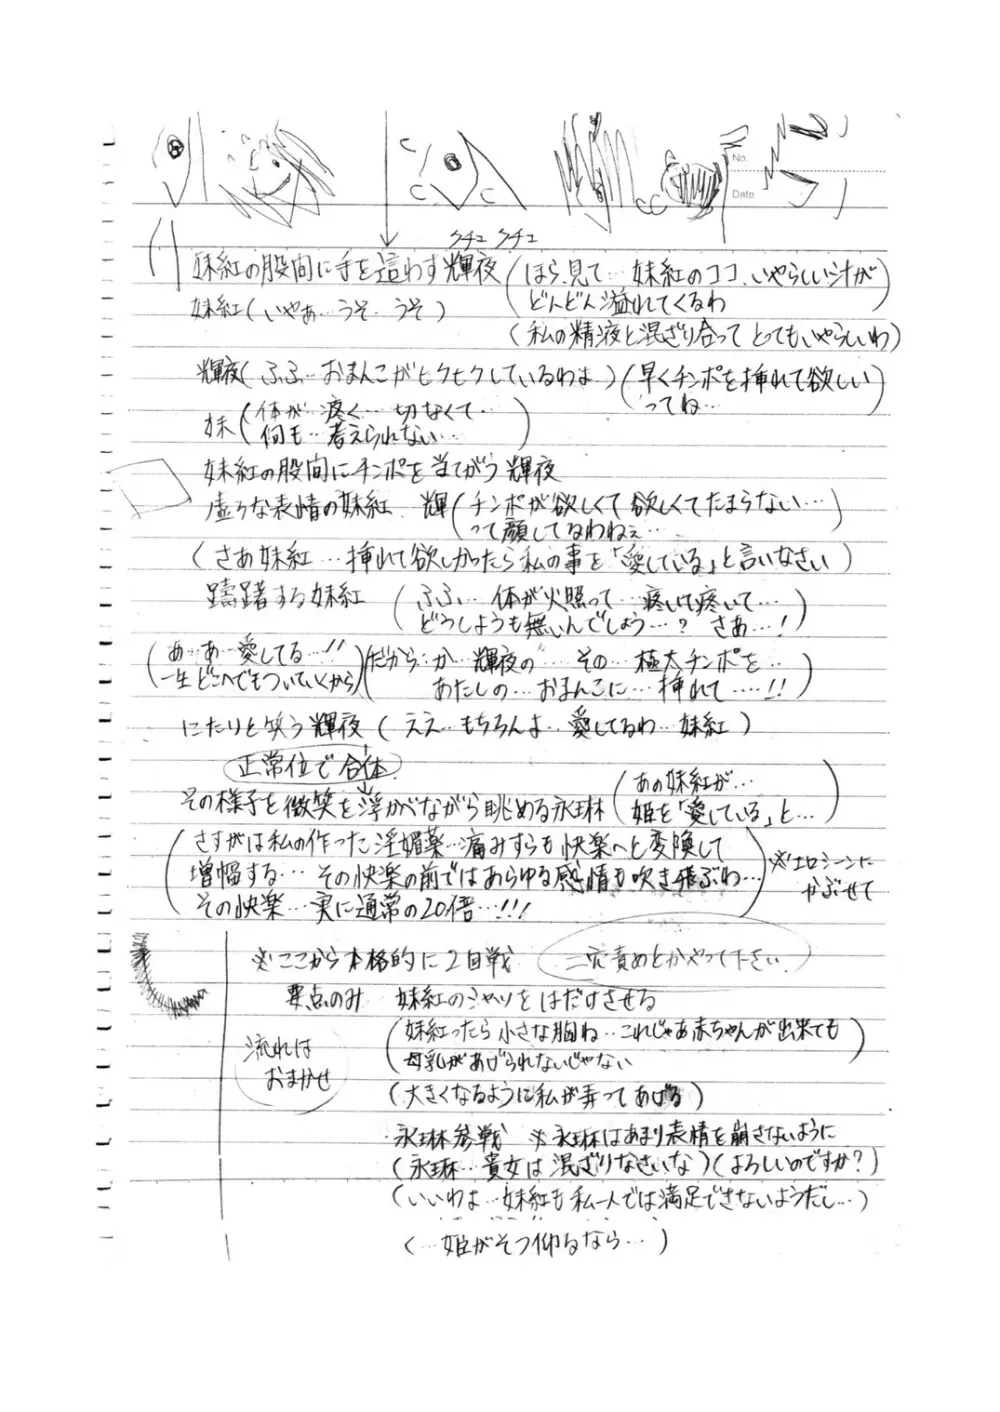 No.
Date
クチュ クチュ
妹紅の股間に手を這わす輝夜（ほら、見て…妹紅のココ、いやらしい汁が
どんどん溢れてくるわ）
妹紅（いやぁ…うそ…うそ）
（私の精液と混ざり合って とてもいやらしいわ）
輝夜（ふふ…おまんこがヒクヒクしているわよ）（早くチンポを挿れて欲しい
ってね…）
妹（体が…疼く…切なくて…
何も…考えられない…）
妹紅の股間にチンポを当てがう輝夜
虚ろな表情の妹紅 輝（チンポが欲しくて欲しくてたまらない…
って顔してるわねぇ…）
（さあ妹紅…挿れて欲しかったら私の事を「愛している」と言いなさい）
躊躇する妹紅（ふふ…体が火照って…疼いて疼いて…
どうしようも無いんでしょう…？ さあ…！）
（あ…あ…愛してる…！！
一生どこへでもついていくから）（だから…か…輝夜の…その…極太チンポを…
あたしの…おまんこに…挿れて……！！）
にたりと笑う輝夜（ええ…もちろんよ…愛してるわ…妹紅）
正常位で合体
その様子を微笑を浮かべながら眺める永琳（あの妹紅が…
姫を「愛している」と…）
（さすがは私の作った淫媚薬…痛みすらも快楽へと変換して
増幅する…その快楽の前ではあらゆる感情も吹き飛ぶわ…
その快楽…実に通常の20倍…！！！）
※エロシーンに
かぶせて
※ここから本格的に2回戦
二穴責めとかやって下さい。
要点のみ 妹紅のシャツをはだけさせる
流れは
おまかせ
（妹紅ったら小さな胸ね…これじゃあ赤ちゃんが出来ても
母乳があげられないじゃない）
（大きくなるように私が弄ってあげる）
永琳参戦 ※永琳はあまり表情を崩さないように
（永琳…貴女は混ざりなさいな）（よろしいのですか？）
（いいわよ…妹紅も私一人では満足できないようだし…）
（…姫がそう仰るなら…）